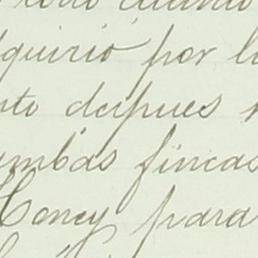 cuando
quirió por l
to despues
ambas fincas
Coney para